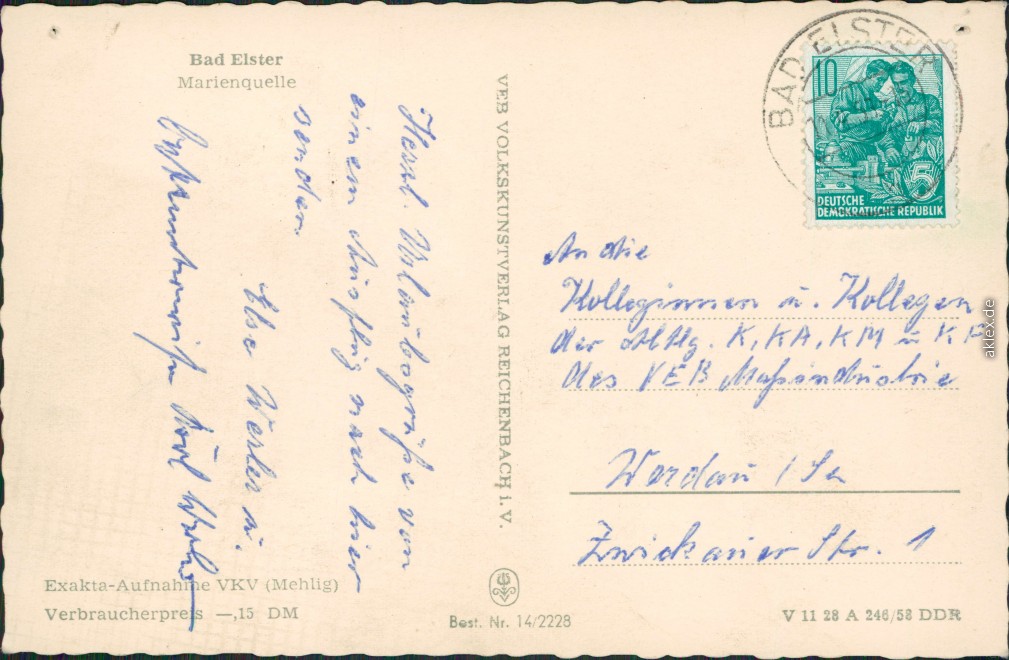 Bad Elster
Marienquelle
Herzl. Urlaubsgrüße von
einem Ausflug nach hier
senden
Else Weber u.
VEB VOLKSKUNSTVERLAG REICHENBACH i. V.
BAD ELSTER
10
5
DEUTSCHE
DEMOKRATISCHE REPUBLIK
An die
Kolleginnen u. Kollegen
der Abtlg. K, KA, KM u KP
des VEB
Werdau / Sa
Zwickauer Str. 1
Exakta-Aufnahme VKV (Mehlig)
Verbraucherpreis —,15 DM
Best. Nr. 14/2228
V 11 28 A 246/58 DDR
aklex.de